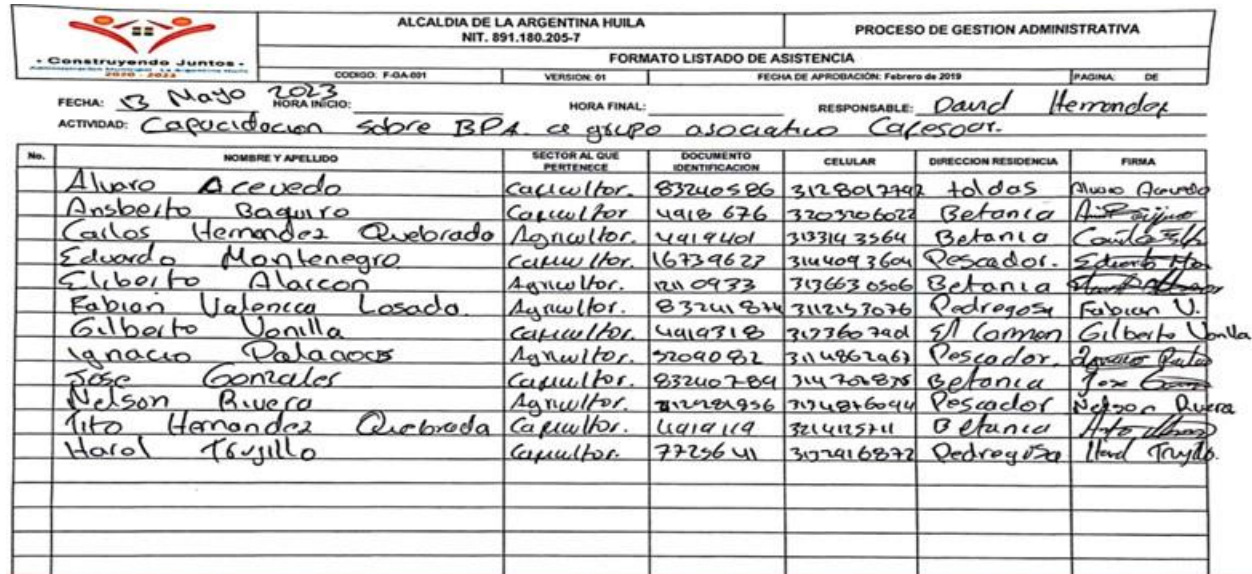 ALCALDIA DE LA ARGENTINA HUILA
NIT. 891.180.205-7
PROCESO DE GESTION ADMINISTRATIVA
- Construyendo Juntos -
2020 - 2023
FORMATO LISTADO DE ASISTENCIA
CODIGO: F-GA-001 VERSION: 01 FECHA DE APROBACIÓN: Febrero de 2019 PAGINA: DE
FECHA: 13 Mayo 2023 HORA INICIO: HORA FINAL: RESPONSABLE: David Hernandez
ACTIVIDAD: Capacidacion sobre BPA a grupo asociativo
No. NOMBRE Y APELLIDO SECTOR AL QUE PERTENECE DOCUMENTO IDENTIFICACION CELULAR DIRECCION RESIDENCIA FIRMA
Alvaro Acevedo Caficultor. 83240586 toldas Alvaro Acevedo
Ansberto Baquiro Caficultor 4918 676 3203206022 Betania
Carlos Hernandez Quebrada Agricultor. 4919401 313314 3564 Betania
Eduardo Montenegro Caficultor. 16739627 3144093604 Pescador.
Eliberto Alarcon Agricultor. 313663 0506 Betania
Fabian Valencia Losada Agricultor. 83241874 3112153076 Pedregosa Fabian V.
Gilberto Vonilla Caficultor. 4919318 El Carmen Gilberto Vonilla
Ignacio Palacios Agricultor. 3114862967 Pescador.
Jose Gonzales Caficultor. 83240789 Betania Jose
Nelson Rivera Agricultor. Pescador Nelson Rivera
Tito Hernandez Quebrada Caficultor. 4919119 Betania
Harol Trujillo Caficultor. Pedregosa Harol Trujillo.